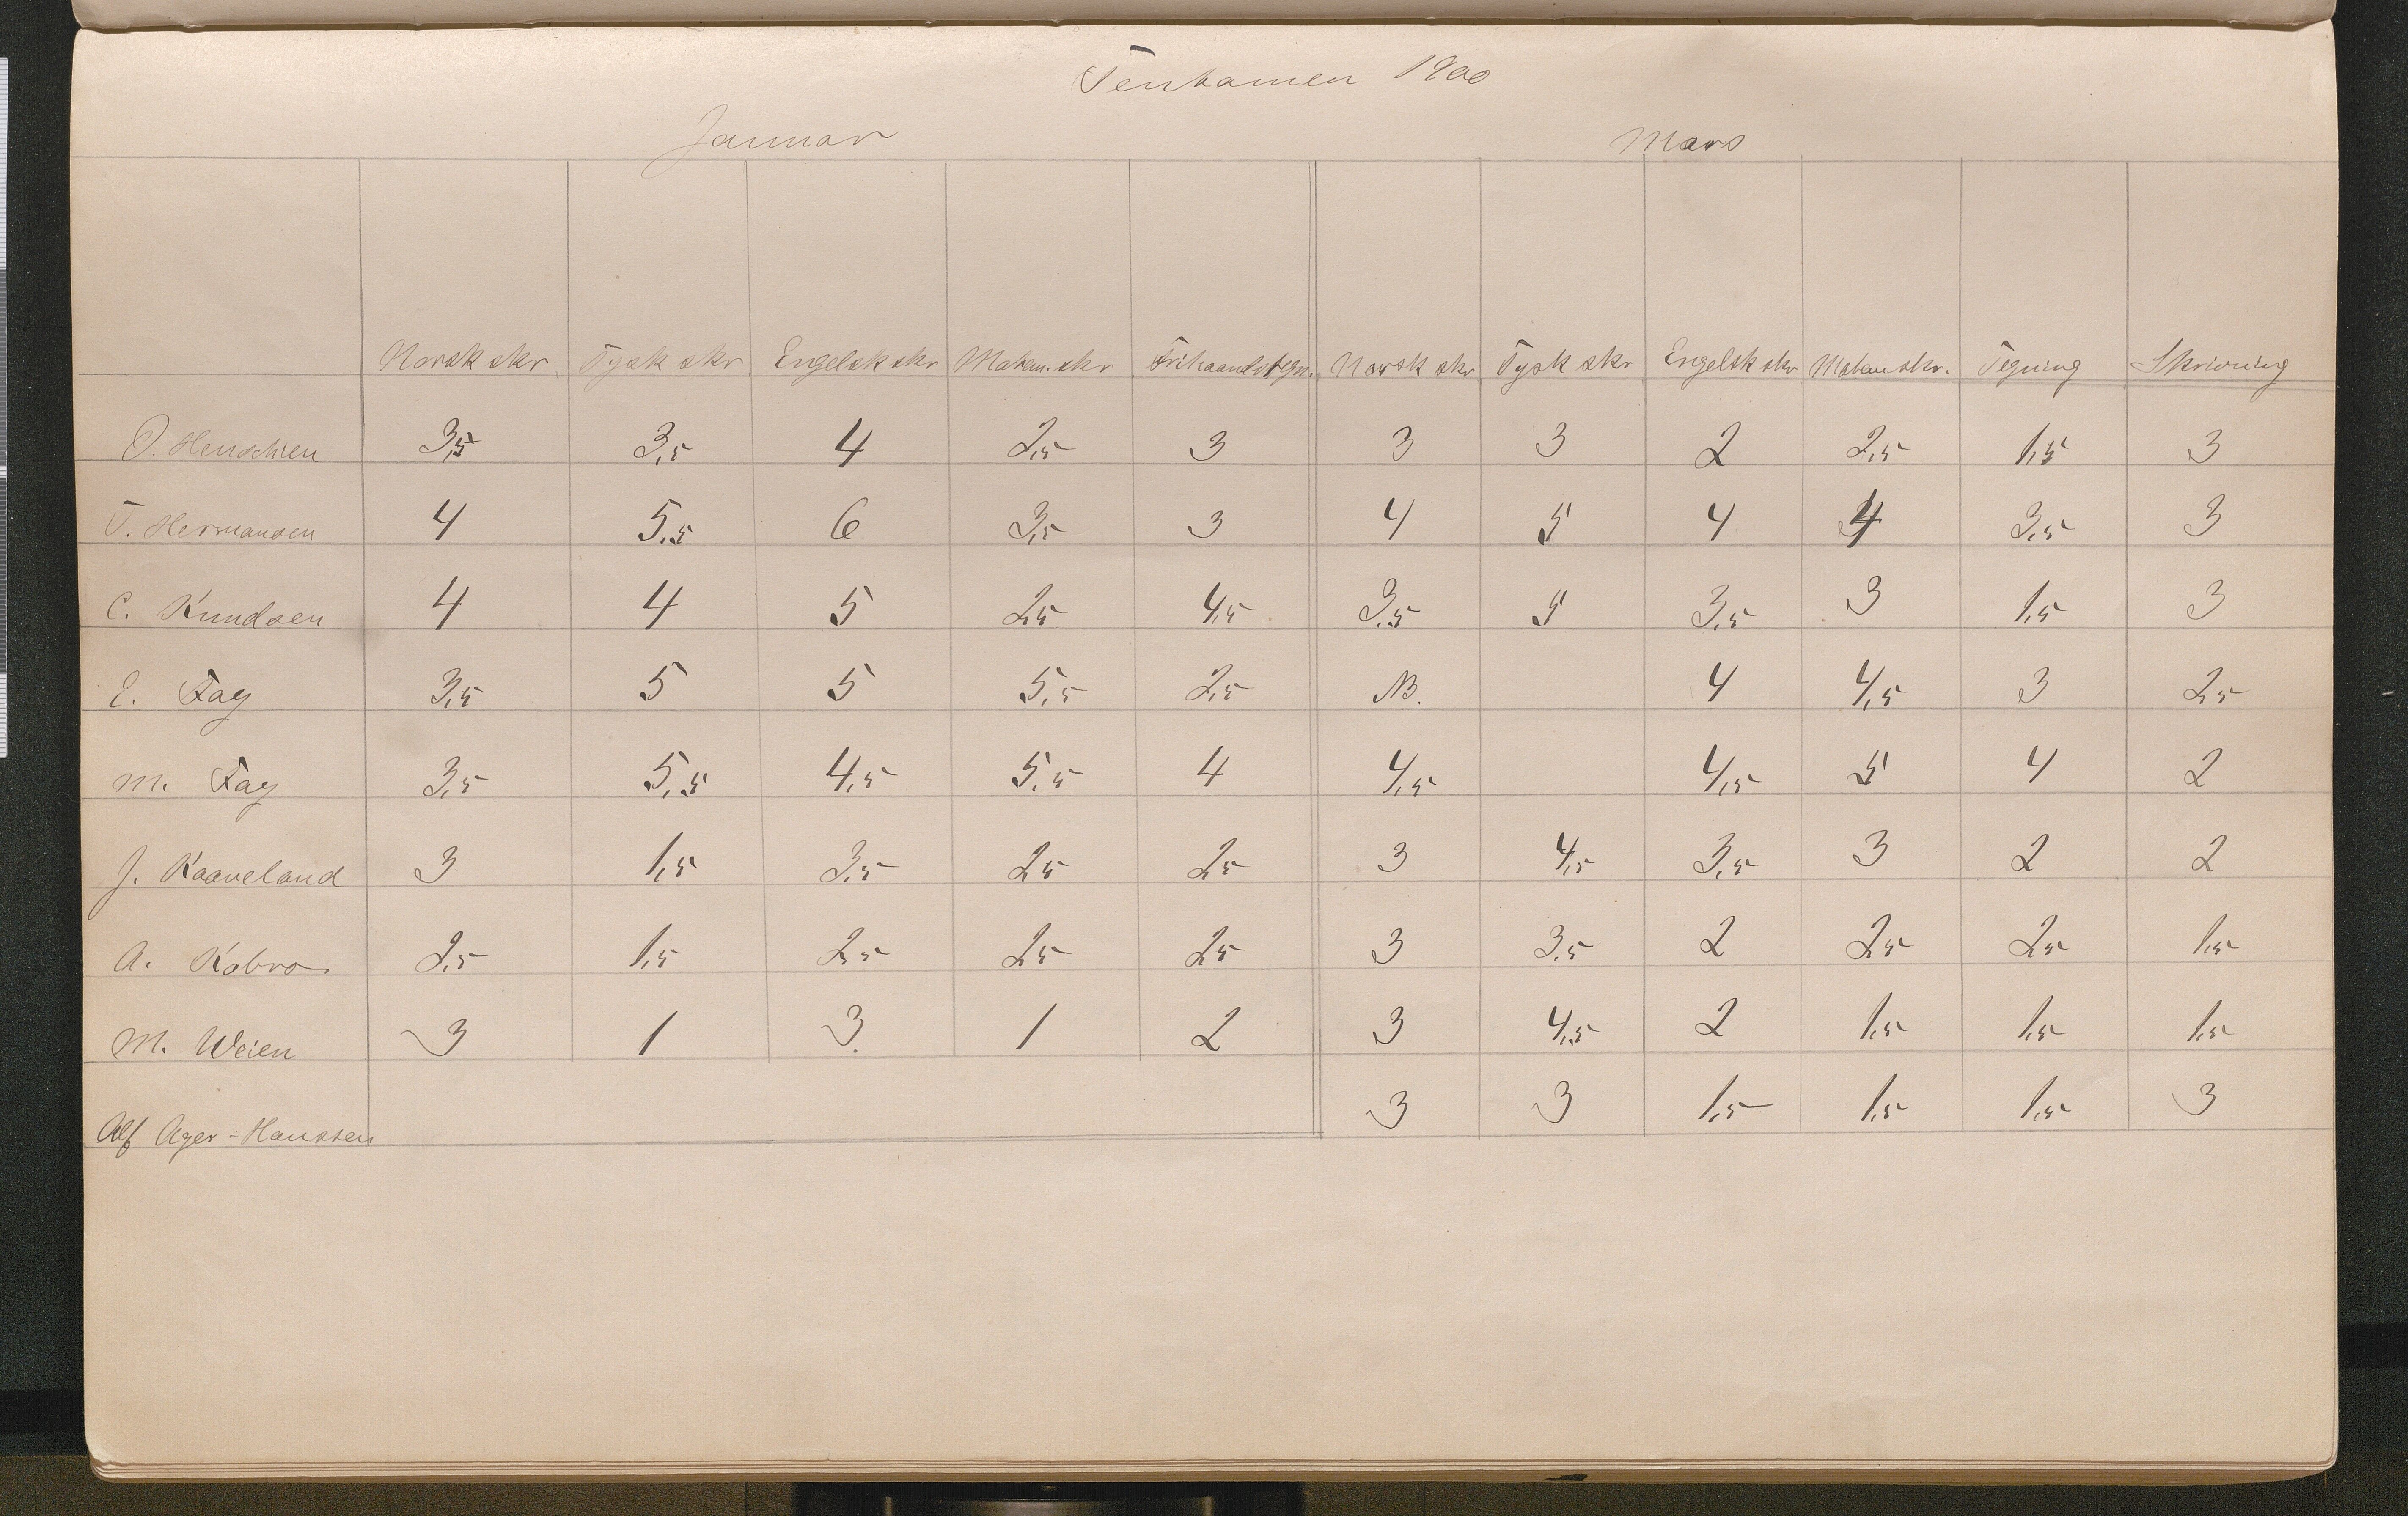 Tentamen 1900
Januar Mars
Norsk skr Tysk skr Engelsk skr Matem. skr Frihaandstegn. Norsk skr Tysk skr Engelsk skr Matem skr. Tegning Skrivning
O. Henschien 3,5 3,5 4 2,5 3 3 3 2 2,5 1,5 3
T. Hermansen 4 5,5 6 3,5 3 4 5 4 4 3,5 3
C. Knudsen 4 4 5 2,5 4,5 3,5 5 3,5 3 1,5 3
E. Fay 3,5 5 5 5,5 2,5 NB. 4 4,5 3 2,5
M. Fay 3,5 5,5 4,5 5,5 4 4,5 4,5 5 4 2
J. Kaaveland 3 1,5 3,5 2,5 2,5 3 4,5 3,5 3 2 2
A. Kobro 2,5 1,5 2,5 2,5 2,5 3 3,5 2 2,5 2,5 1,5
M. Weien 3 1 3. 1 2 3 4,5 2 1,5 1,5 1,5
Alf Ager-Hanssen 3 3 1,5 1,5 1,5 3